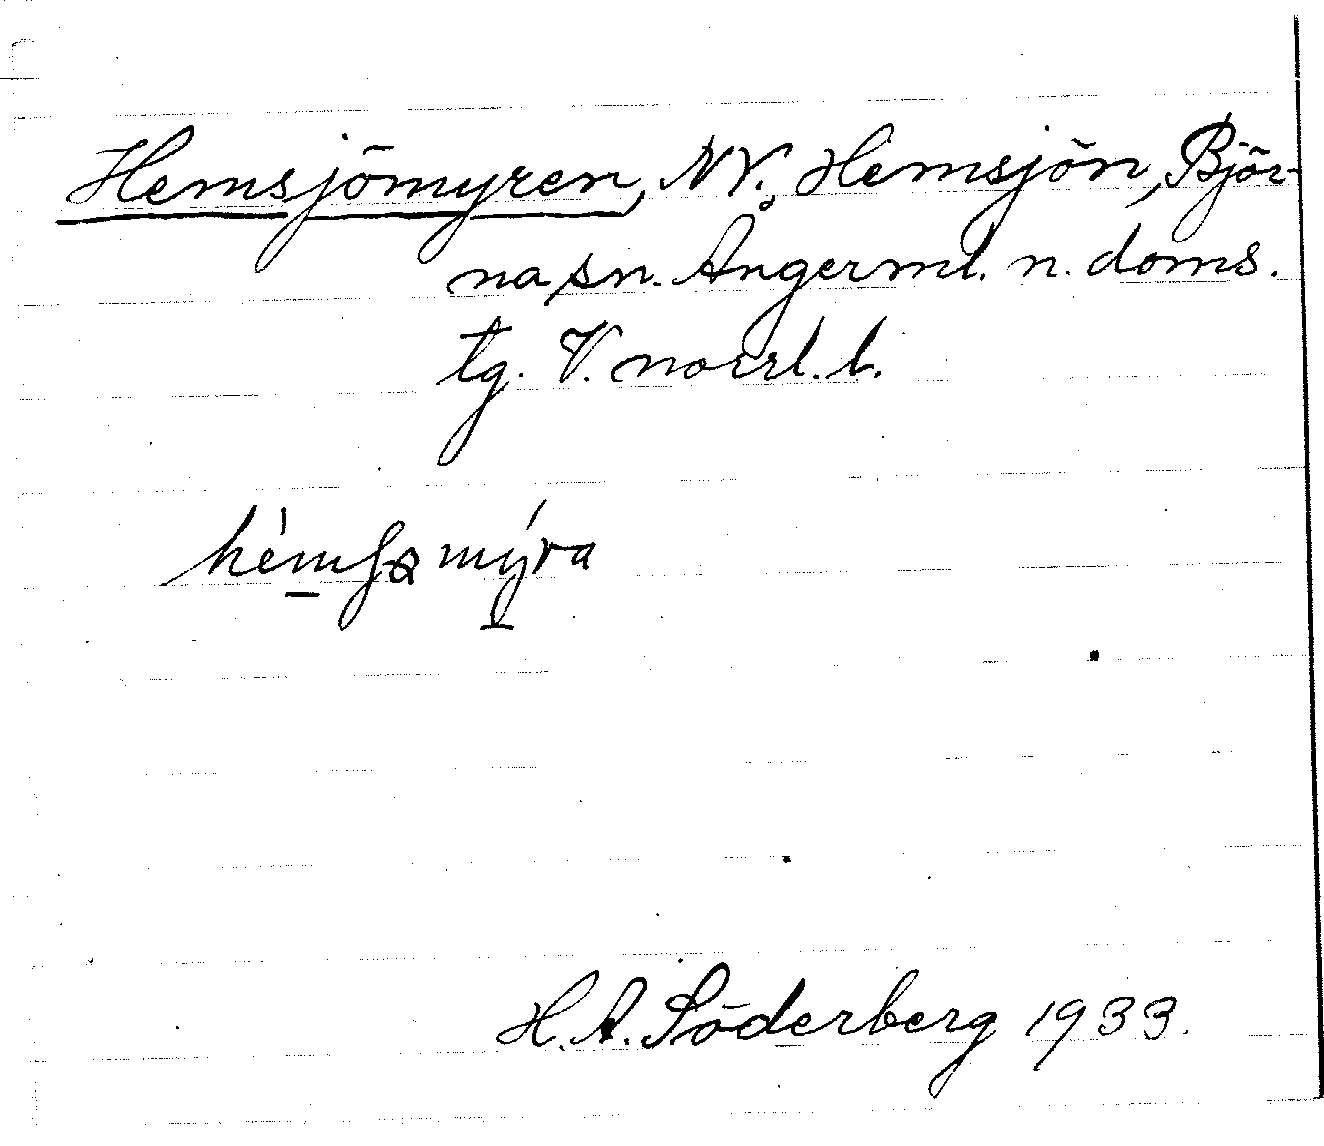 Hemsjömyren, NV. Hemsjön, Björ-
na sn. Ångerml. n. doms.
tg. V. norrl. l.
hémʃɷ mýra
H. A. Söderberg 1933.